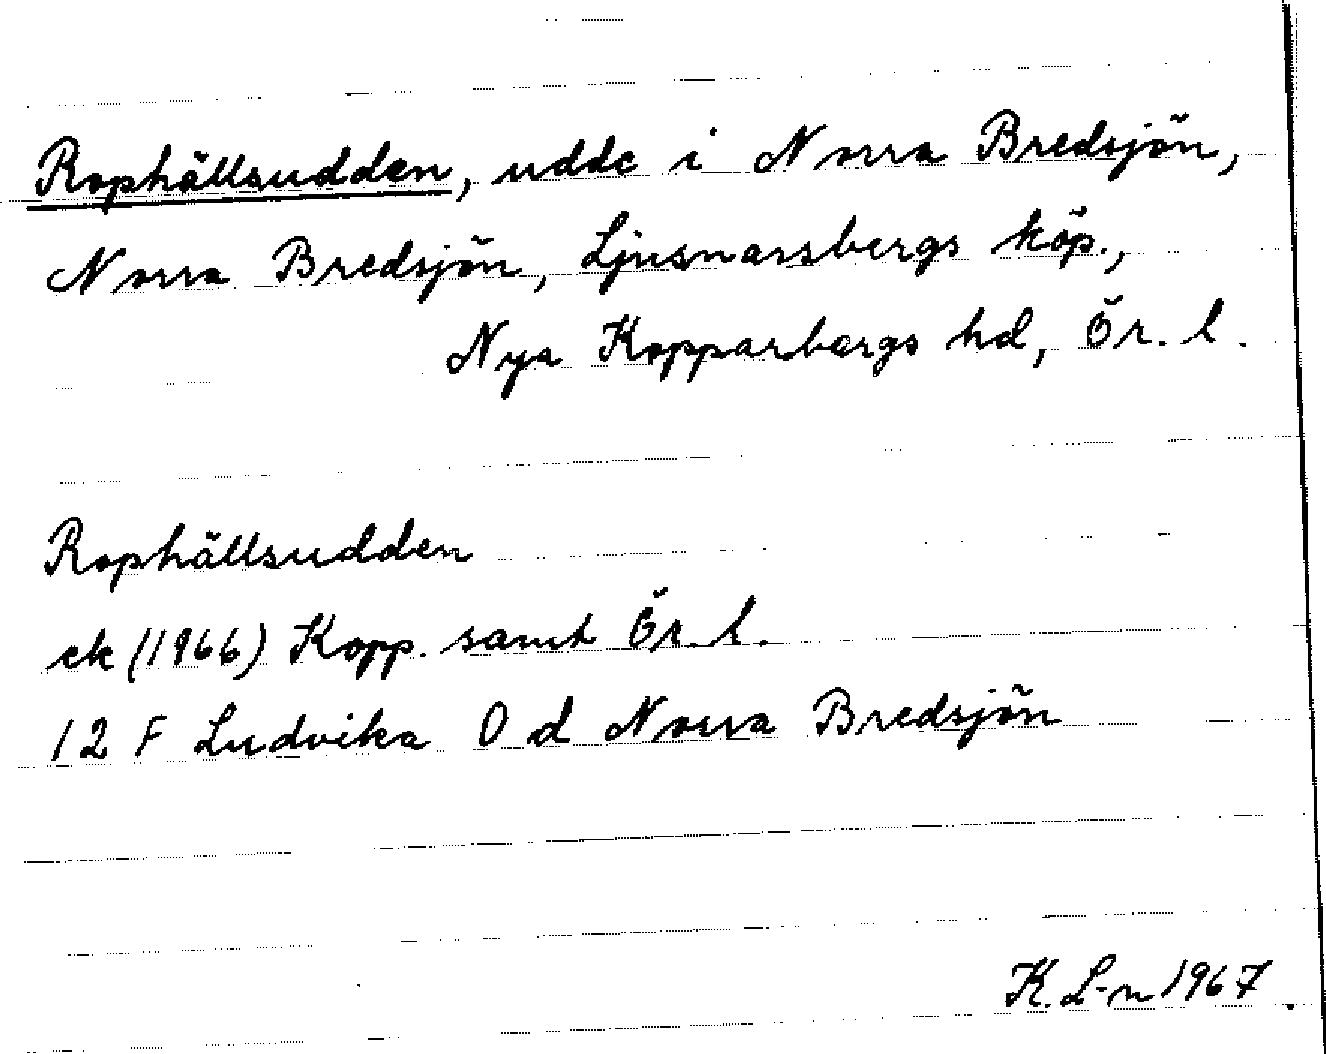 Rophällsudden, udde i Norra Bredsjön,
Norra Bredsjön, Ljusnarsbergs köp.,
Nya Kopparbergs hd, Ör. l.
Rophällsudden
ek (1966) Kopp. samt Ör. l.
12 F Ludvika 0 d Norra Bredsjön
K. L-n 1967.